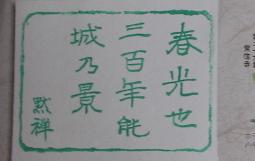 春光也
三百年能
城乃景
黙禅